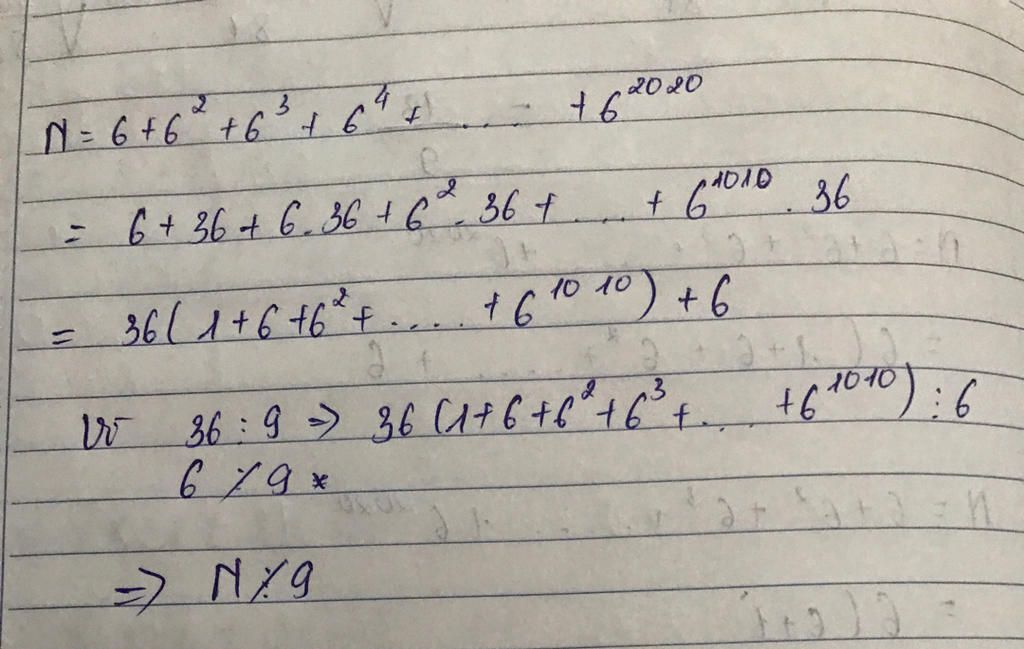 N = 6 + 6² + 6³ + 6⁴ + .... + 6²⁰²⁰
= 6 + 36 + 6.36 + 6².36 + .... + 6¹⁰¹⁰.36
= 36(1 + 6 + 6² + .... + 6¹⁰¹⁰) + 6
Vì 36 ⋮ 9 => 36(1 + 6 + 6² + 6³ + ... + 6¹⁰¹⁰) ⋮ 6
6 ⋮̸ 9 *
=> N ⋮̸ 9